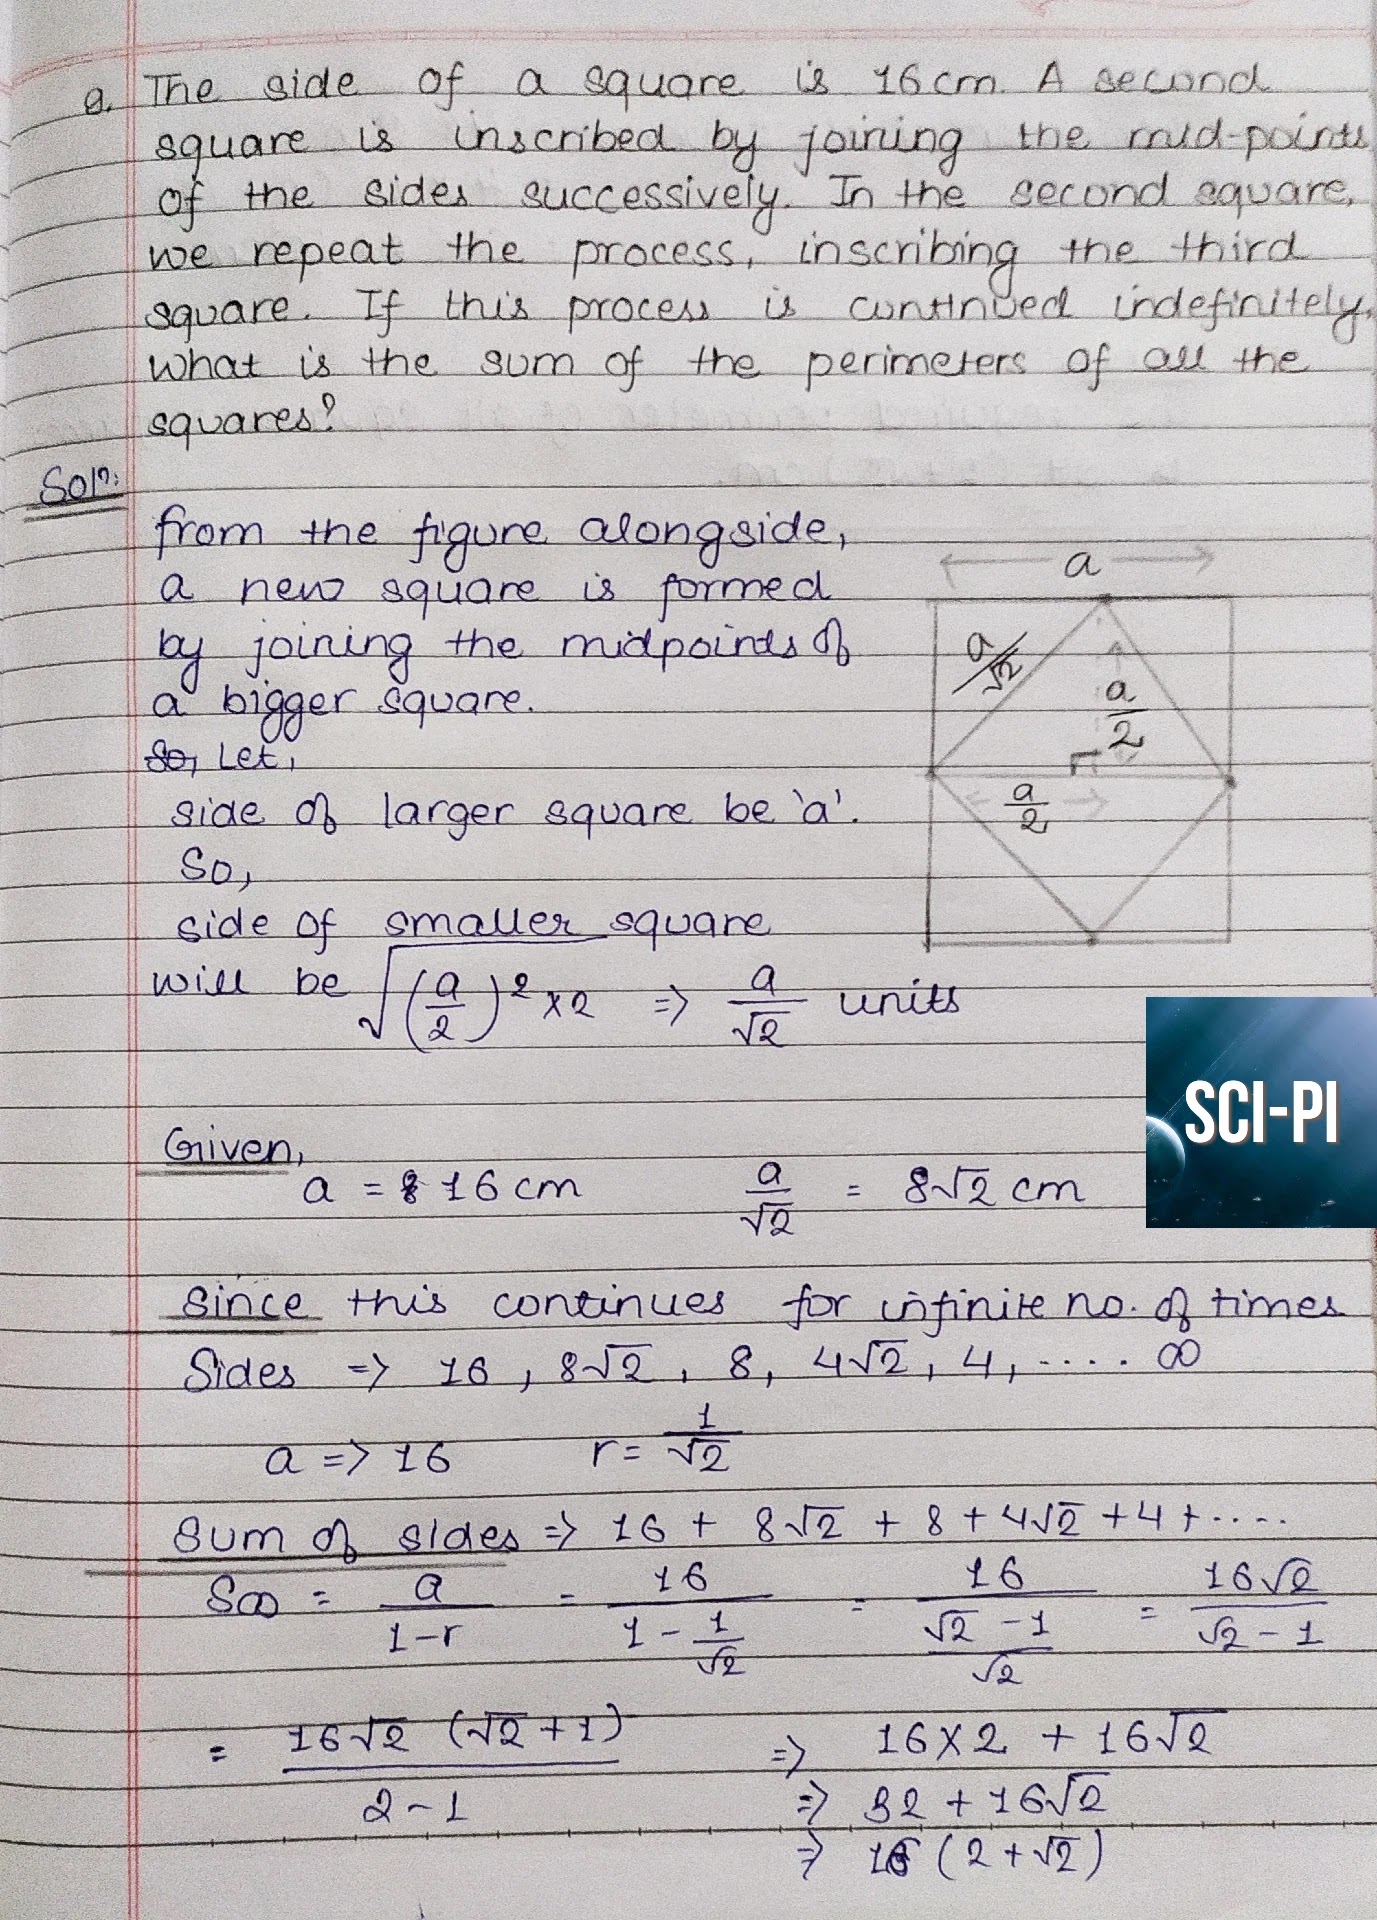 Q. The side of a square is 16cm. A second
square is inscribed by joining the mid-points
of the sides successively. In the second square,
we repeat the process, inscribing the third
square. If this process is continued indefinitely,
what is the sum of the perimeters of all the
squares?
Solⁿ:
from the figure alongside,
a new square is formed
by joining the midpoints of
a bigger square.
So, Let,
side of larger square be 'a'.
So,
side of smaller square
will be √((a/2)² × 2) => a/√2 units
a
a/√2
a/2
a/2
SCI-PI
Given,
a = 16 cm a/√2 = 8√2 cm
Since this continues for infinite no. of times
Sides => 16, 8√2, 8, 4√2, 4, ..... ∞
a => 16 r = 1/√2
Sum of sides => 16 + 8√2 + 8 + 4√2 + 4 + ....
S∞ = a/(1-r) = 16/(1 - 1/√2) = 16/((√2 - 1)/√2) = 16√2/(√2 - 1)
= 16√2 (√2 + 1)/(2 - 1) => 16×2 + 16√2
=> 32 + 16√2
=> 16 (2 + √2)